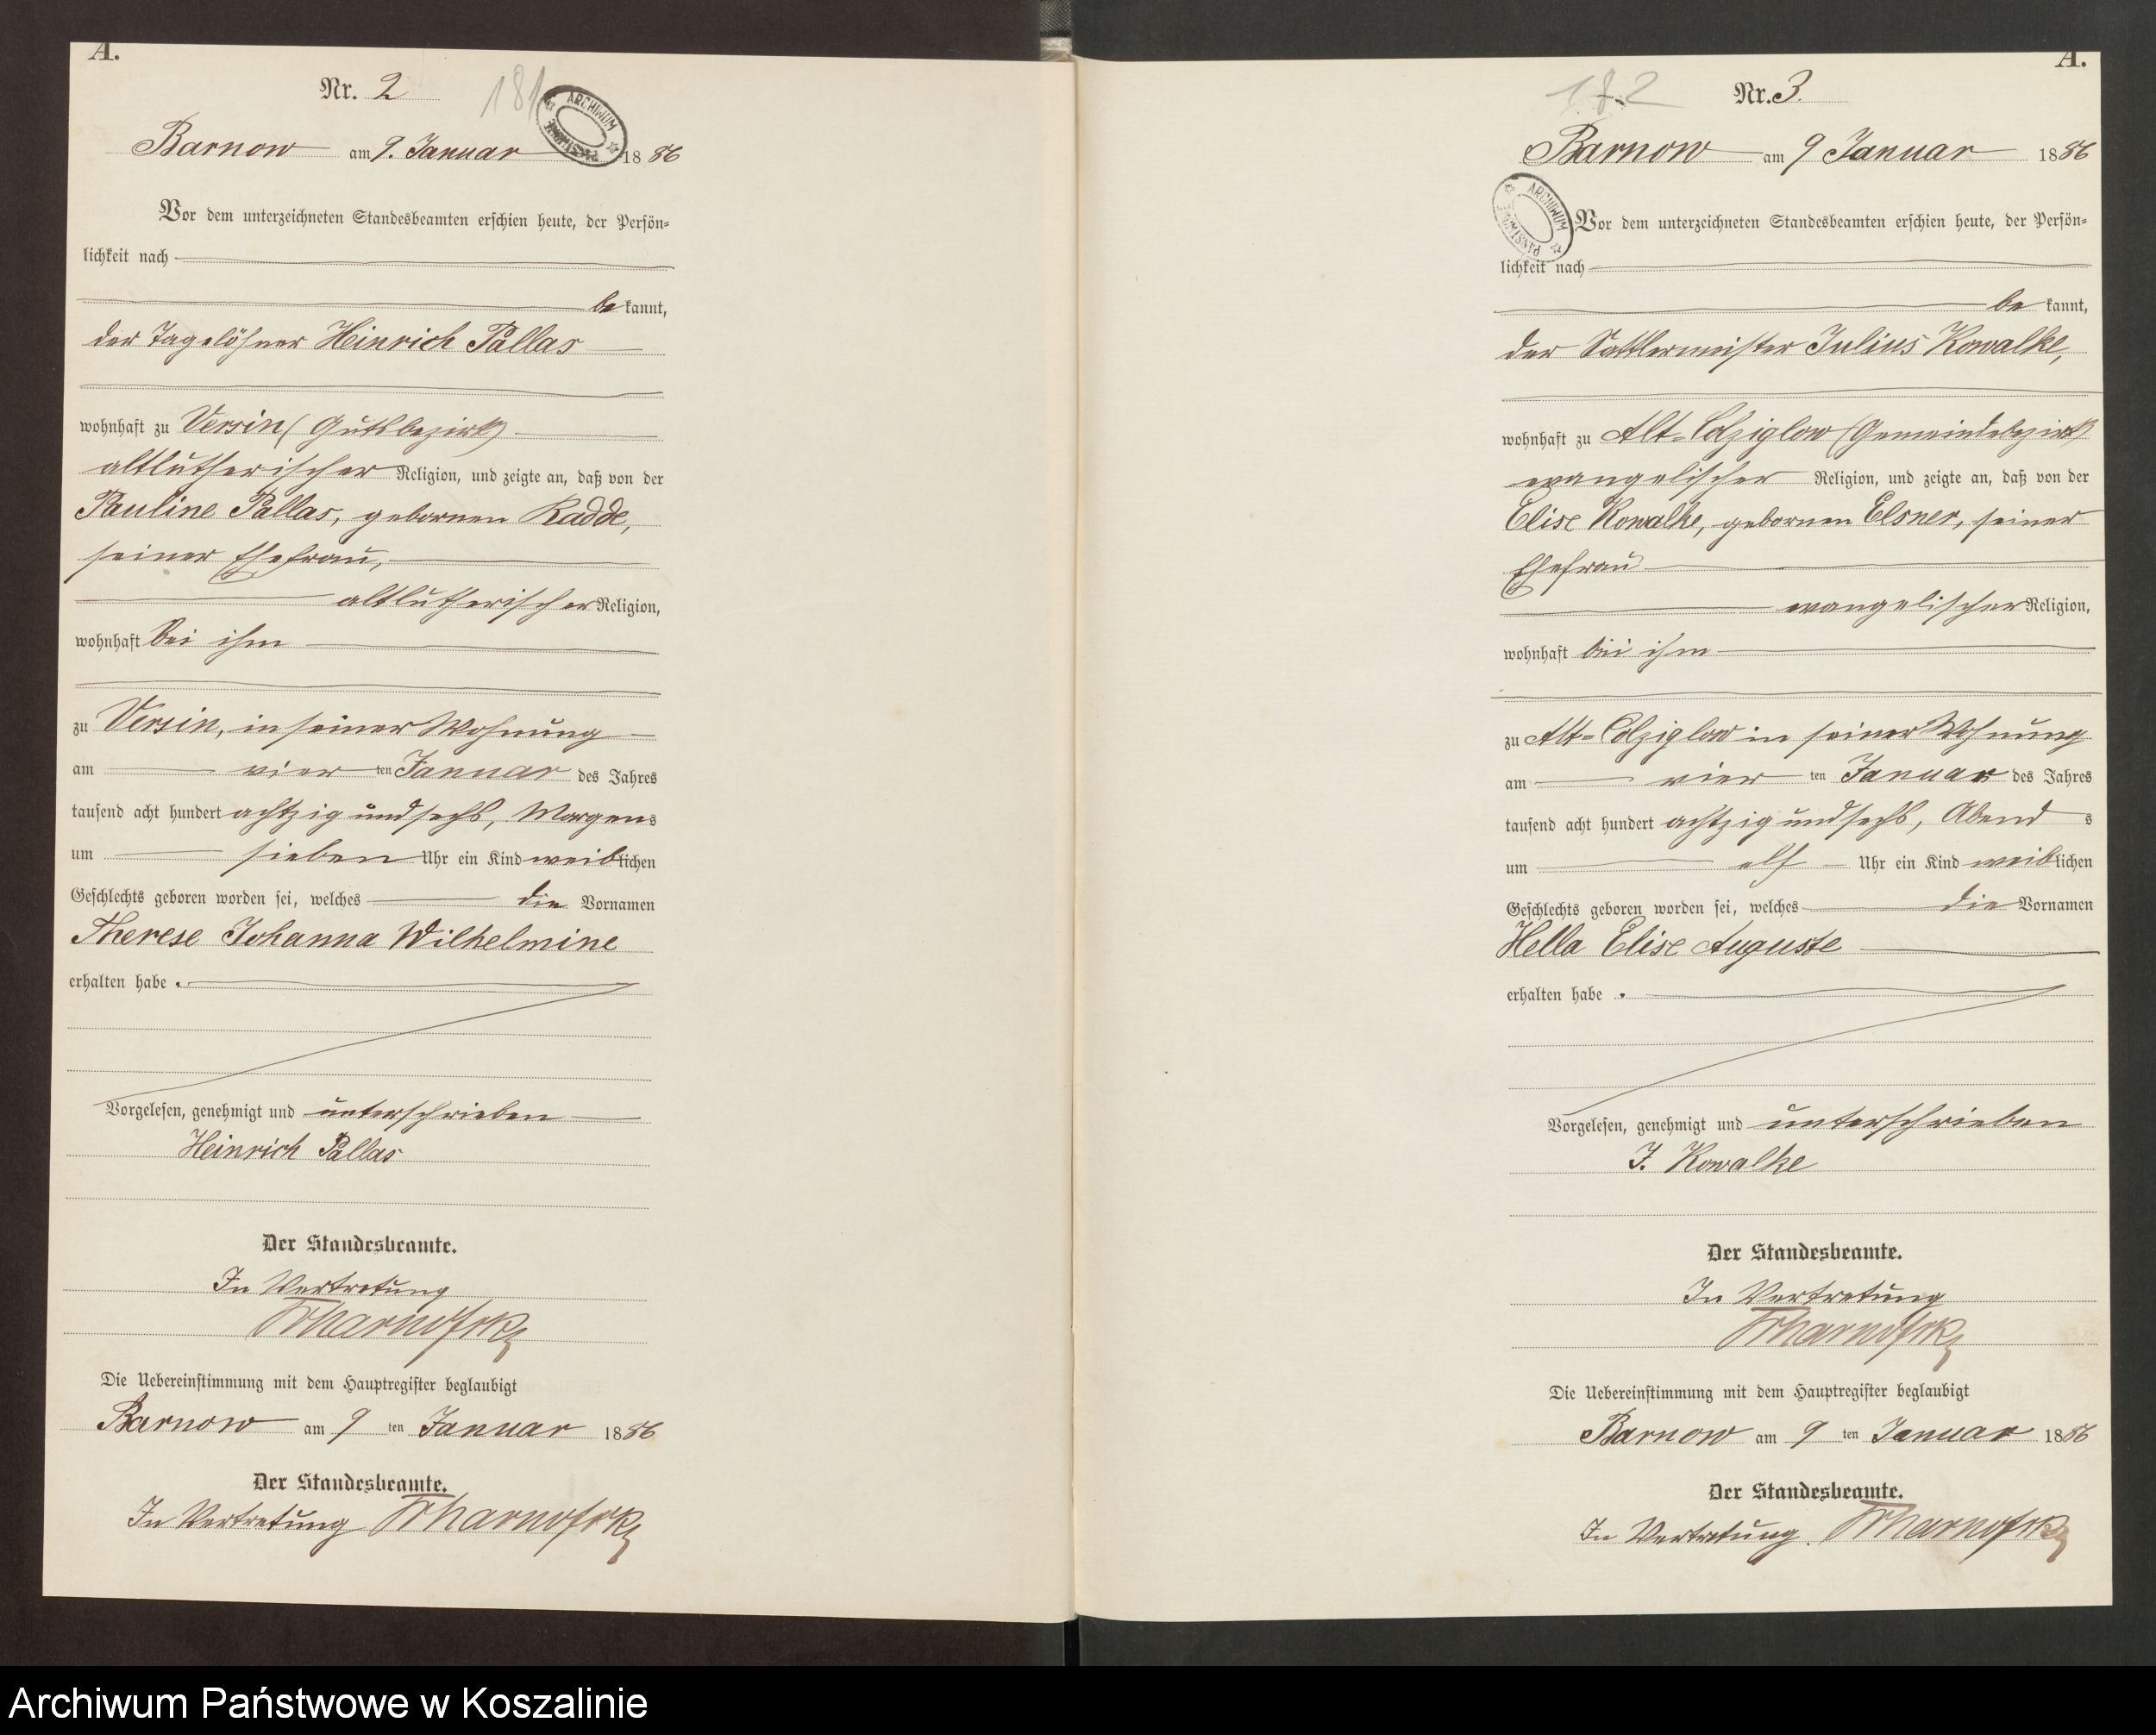 A.
Nr. 2
181
ARCHIWUM
PAŃSTWOWE
Barnow am 9. Januar 1886
Vor dem unterzeichneten Standesbeamten erschien heute, der Persön=
lichkeit nach
be kannt,
der Tagelöhner Heinrich Pallas
wohnhaft zu Versin (Gutsbezirk)
altlutherischer Religion, und zeigte an, daß von der
Pauline Pallas, gebornen Radde,
seiner Ehefrau,
altlutherischer Religion,
wohnhaft bei ihm
zu Versin, in seiner Wohnung
am vier ten Januar des Jahres
tausend acht hundert achtzig und sechs, Morgens
um sieben Uhr ein Kind weiblichen
Geschlechts geboren worden sei, welches die Vornamen
Therese Johanna Wilhelmine
erhalten habe.
Vorgelesen, genehmigt und unterschrieben
Heinrich Pallas
Der Standesbeamte.
In Vertretung
Die Uebereinstimmung mit dem Hauptregister beglaubigt
Barnow am 9 ten Januar 1886
Der Standesbeamte.
In Vertretung
A.
182
Nr. 3.
Barnow am 9 Januar 1886
ARCHIWUM
PAŃSTWOWE
Vor dem unterzeichneten Standesbeamten erschien heute, der Persön=
lichkeit nach
be kannt,
der Sattlermeister Julius Kowalke,
wohnhaft zu Alt=Colziglow (Gemeindebezirk)
evangelischer Religion, und zeigte an, daß von der
Elise Kowalke, gebornen Elsner, seiner
Ehefrau
evangelischer Religion,
wohnhaft bei ihm
zu Alt=Colziglow in seiner Wohnung
am vier ten Januar des Jahres
tausend acht hundert achtzig und sechs, Abend s
um elf Uhr ein Kind weiblichen
Geschlechts geboren worden sei, welches die Vornamen
Hella Elise Auguste
erhalten habe.
Vorgelesen, genehmigt und unterschrieben
J. Kowalke
Der Standesbeamte.
In Vertretung
Die Uebereinstimmung mit dem Hauptregister beglaubigt
Barnow am 9 ten Januar 1886
Der Standesbeamte.
In Vertretung.
Archiwum Państwowe w Koszalinie